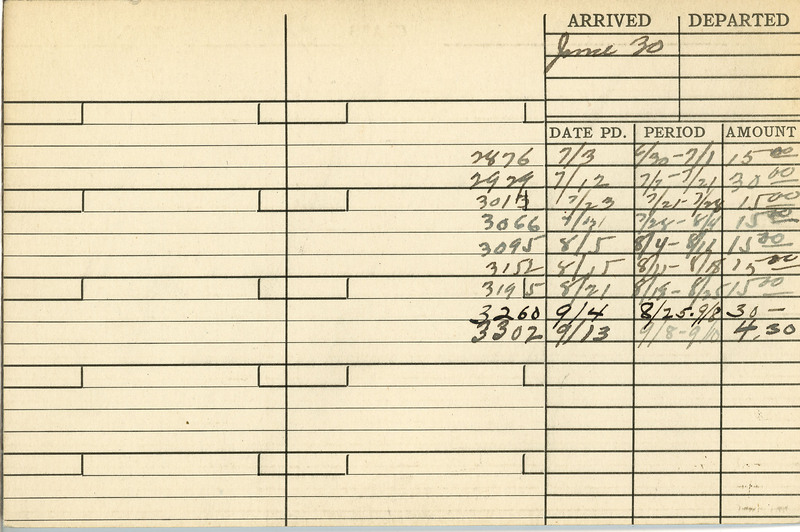 ARRIVED DEPARTED
June 30
DATE PD. PERIOD AMOUNT
2876 7/3 6/30-7/7 15 00
2929 7/12 7/7-7/21 30 00
3013 7/23 7/21-7/28 15 00
3066 7/31 7/28-8/4 15 00
3095 8/5 8/4-8/11 15 00
3152 8/15 8/11-8/18 15 00
3195 8/21 8/18-8/25 15 00
3260 9/4 8/25-9/8 30 —
3302 9/13 9/8-9/10 4.30